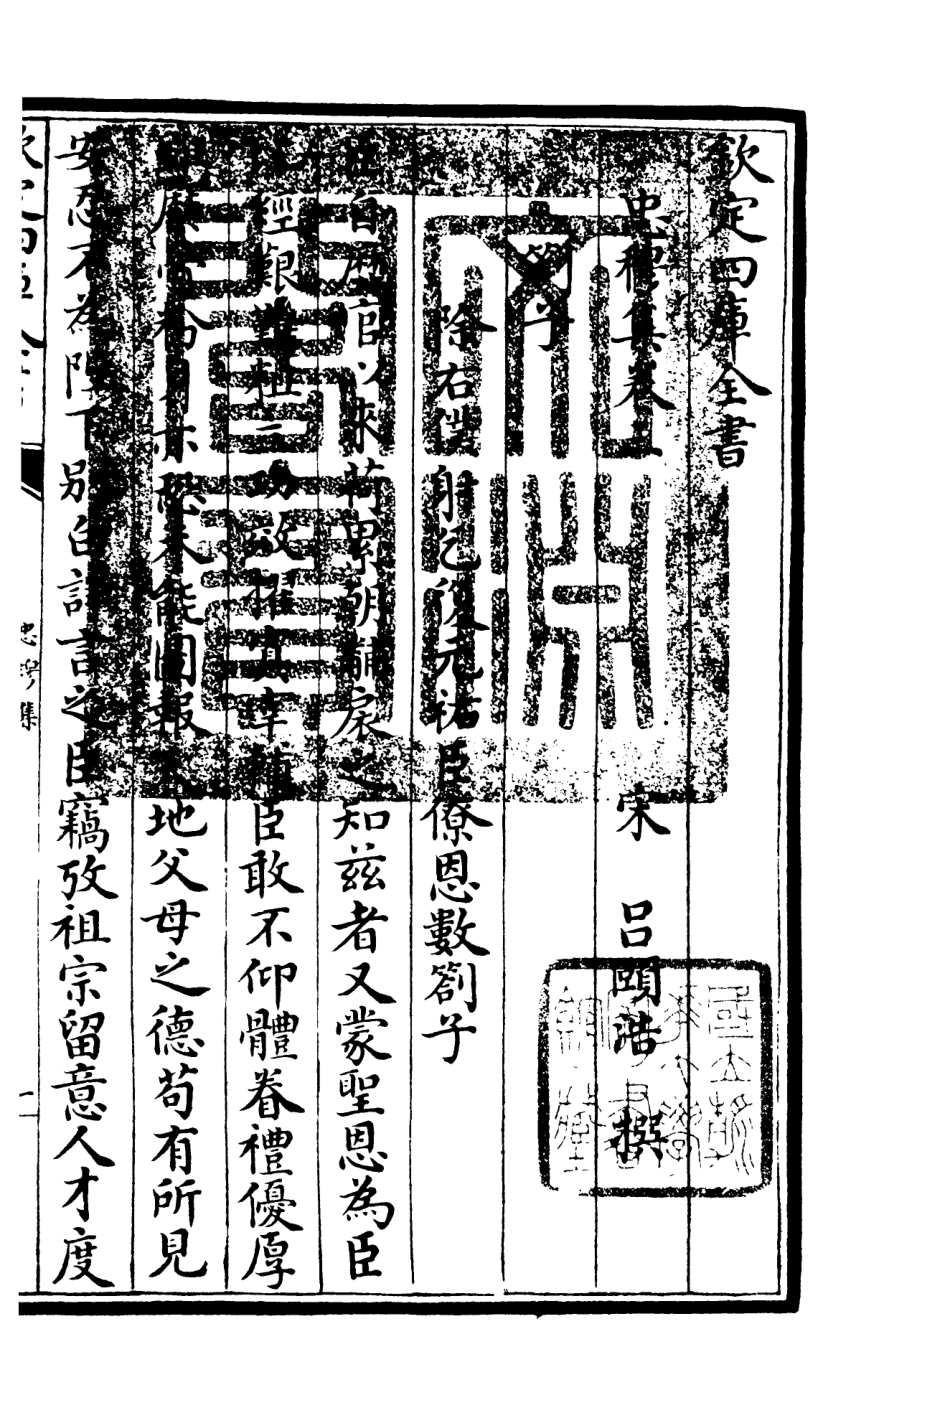 欽定四庫全書
忠穆集卷二
宋 吕頤浩 撰
劄子
除右僕射乞復元祐臣僚恩數劄子
臣自歴官以來荷累朝黼扆之知兹者又蒙聖恩為臣
經艱難粗立功效擢寘宰輔臣敢不仰體眷禮優厚
糜捐亦恐未能圖報天地父母之德苟有所見
安忍不為陛下别白詳言之臣竊攷祖宗留意人才度
忠穆集